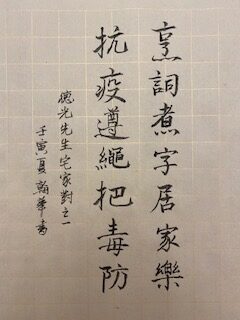 烹詞煮字居家樂
抗疫遵繩把毒防
德光先生宅家對之一
壬寅夏翰華書